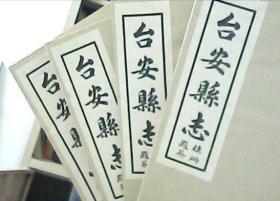 台安縣
台安縣志
台安縣志
台安縣志